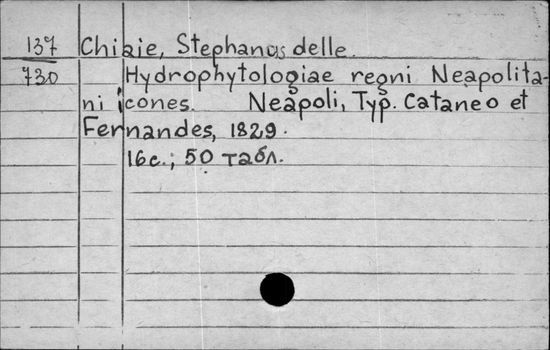 137 Chiaie, Stephanus delle.
730 Hydrophytologiae regni Neapolita-
ni icones. Neapoli, Typ. Cataneo et
Fernandes, 1829.
16с.; 50 табл.